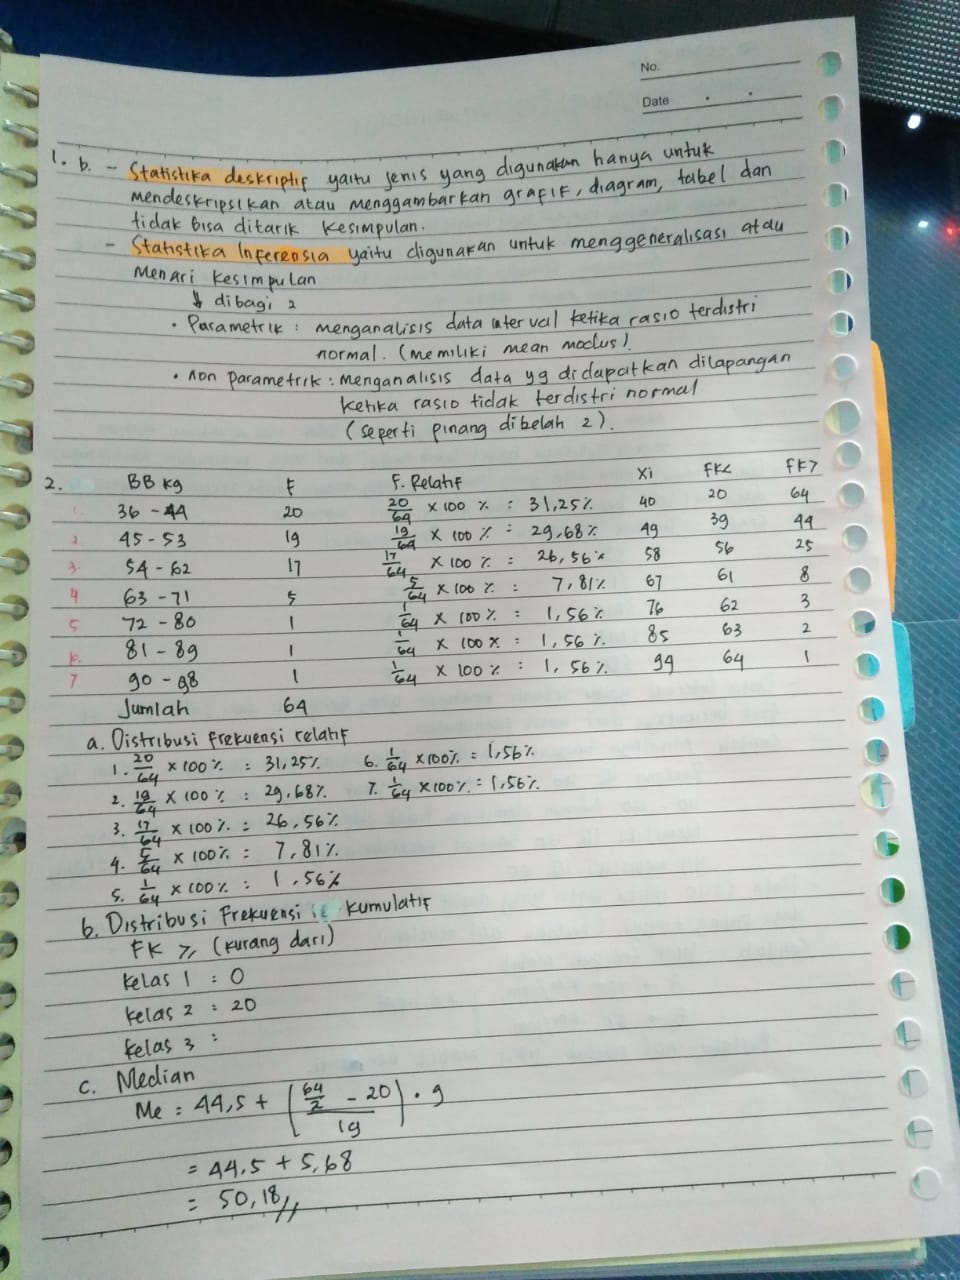 No.
Date . .
1. b. - Statistika deskriptif yaitu jenis yang digunakan hanya untuk
mendeskripsikan atau menggambarkan grafik, diagram, tabel dan
tidak bisa ditarik kesimpulan.
- Statistika Inferensia yaitu digunakan untuk menggeneralisasi atau
Menari kesimpulan
↓ dibagi 2
• Parametrik : menganalisis data interval ketika rasio terdistri
normal. (memiliki mean modus).
• Non parametrik : menganalisis data yg didapatkan dilapangan
ketika rasio tidak terdistri normal
(seperti pinang dibelah 2).
2. BB kg F F. Relatif Xi FK< FK>
1. 36 - 44 20 20/64 x 100 % : 31,25% 40 20 64
2 45 - 53 19 19/64 x 100 % : 29,68% 49 39 44
3. 54 - 62 17 17/64 x 100 % : 26,56% 58 56 25
4 63 - 71 5 5/64 x 100 % : 7,81% 67 61 8
5 72 - 80 1 1/64 x 100 % : 1,56% 76 62 3
6. 81 - 89 1 1/64 x 100 % : 1,56 % 85 63 2
7 90 - 98 1 1/64 x 100 % : 1,56% 94 64 1
Jumlah 64
a. Distribusi frekuensi relatif
1. 20/64 x 100 % : 31,25% 6. 1/64 x 100% = 1,56%
2. 19/64 x 100 % : 29,68% 7. 1/64 x 100% = 1,56%
3. 17/64 x 100 % : 26,56%
4. 5/64 x 100% : 7,81%
5. 1/64 x 100 % : 1,56%
b. Distribusi Frekuensi Kumulatif
FK ≥ (kurang dari)
kelas 1 : 0
kelas 2 : 20
kelas 3 :
c. Median
Me = 44,5 + ( (64/2 - 20) / 19 ) . 9
= 44,5 + 5,68
= 50,18 //